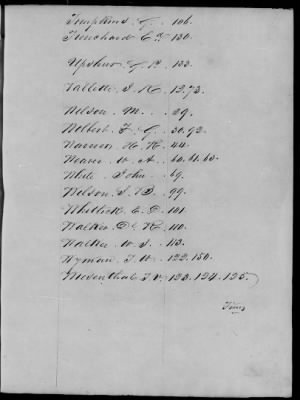 Tompkins G. 106.
Trenchard E. 130.
Upshur G. P. 133.
Vallette J. K. 12.73.
Wilson M. . . 29.
Wolbert F. G. 30.92.
Warner H. H. 44.
Weaver W. A. 60.61.63.
White John . 69.
Wilson J. B. 99.
Whittick E. D. 101.
Walker Dr. K. 110.
Walker W. S. 113.
Wyman T. W. . 122.150.
123.124.125.